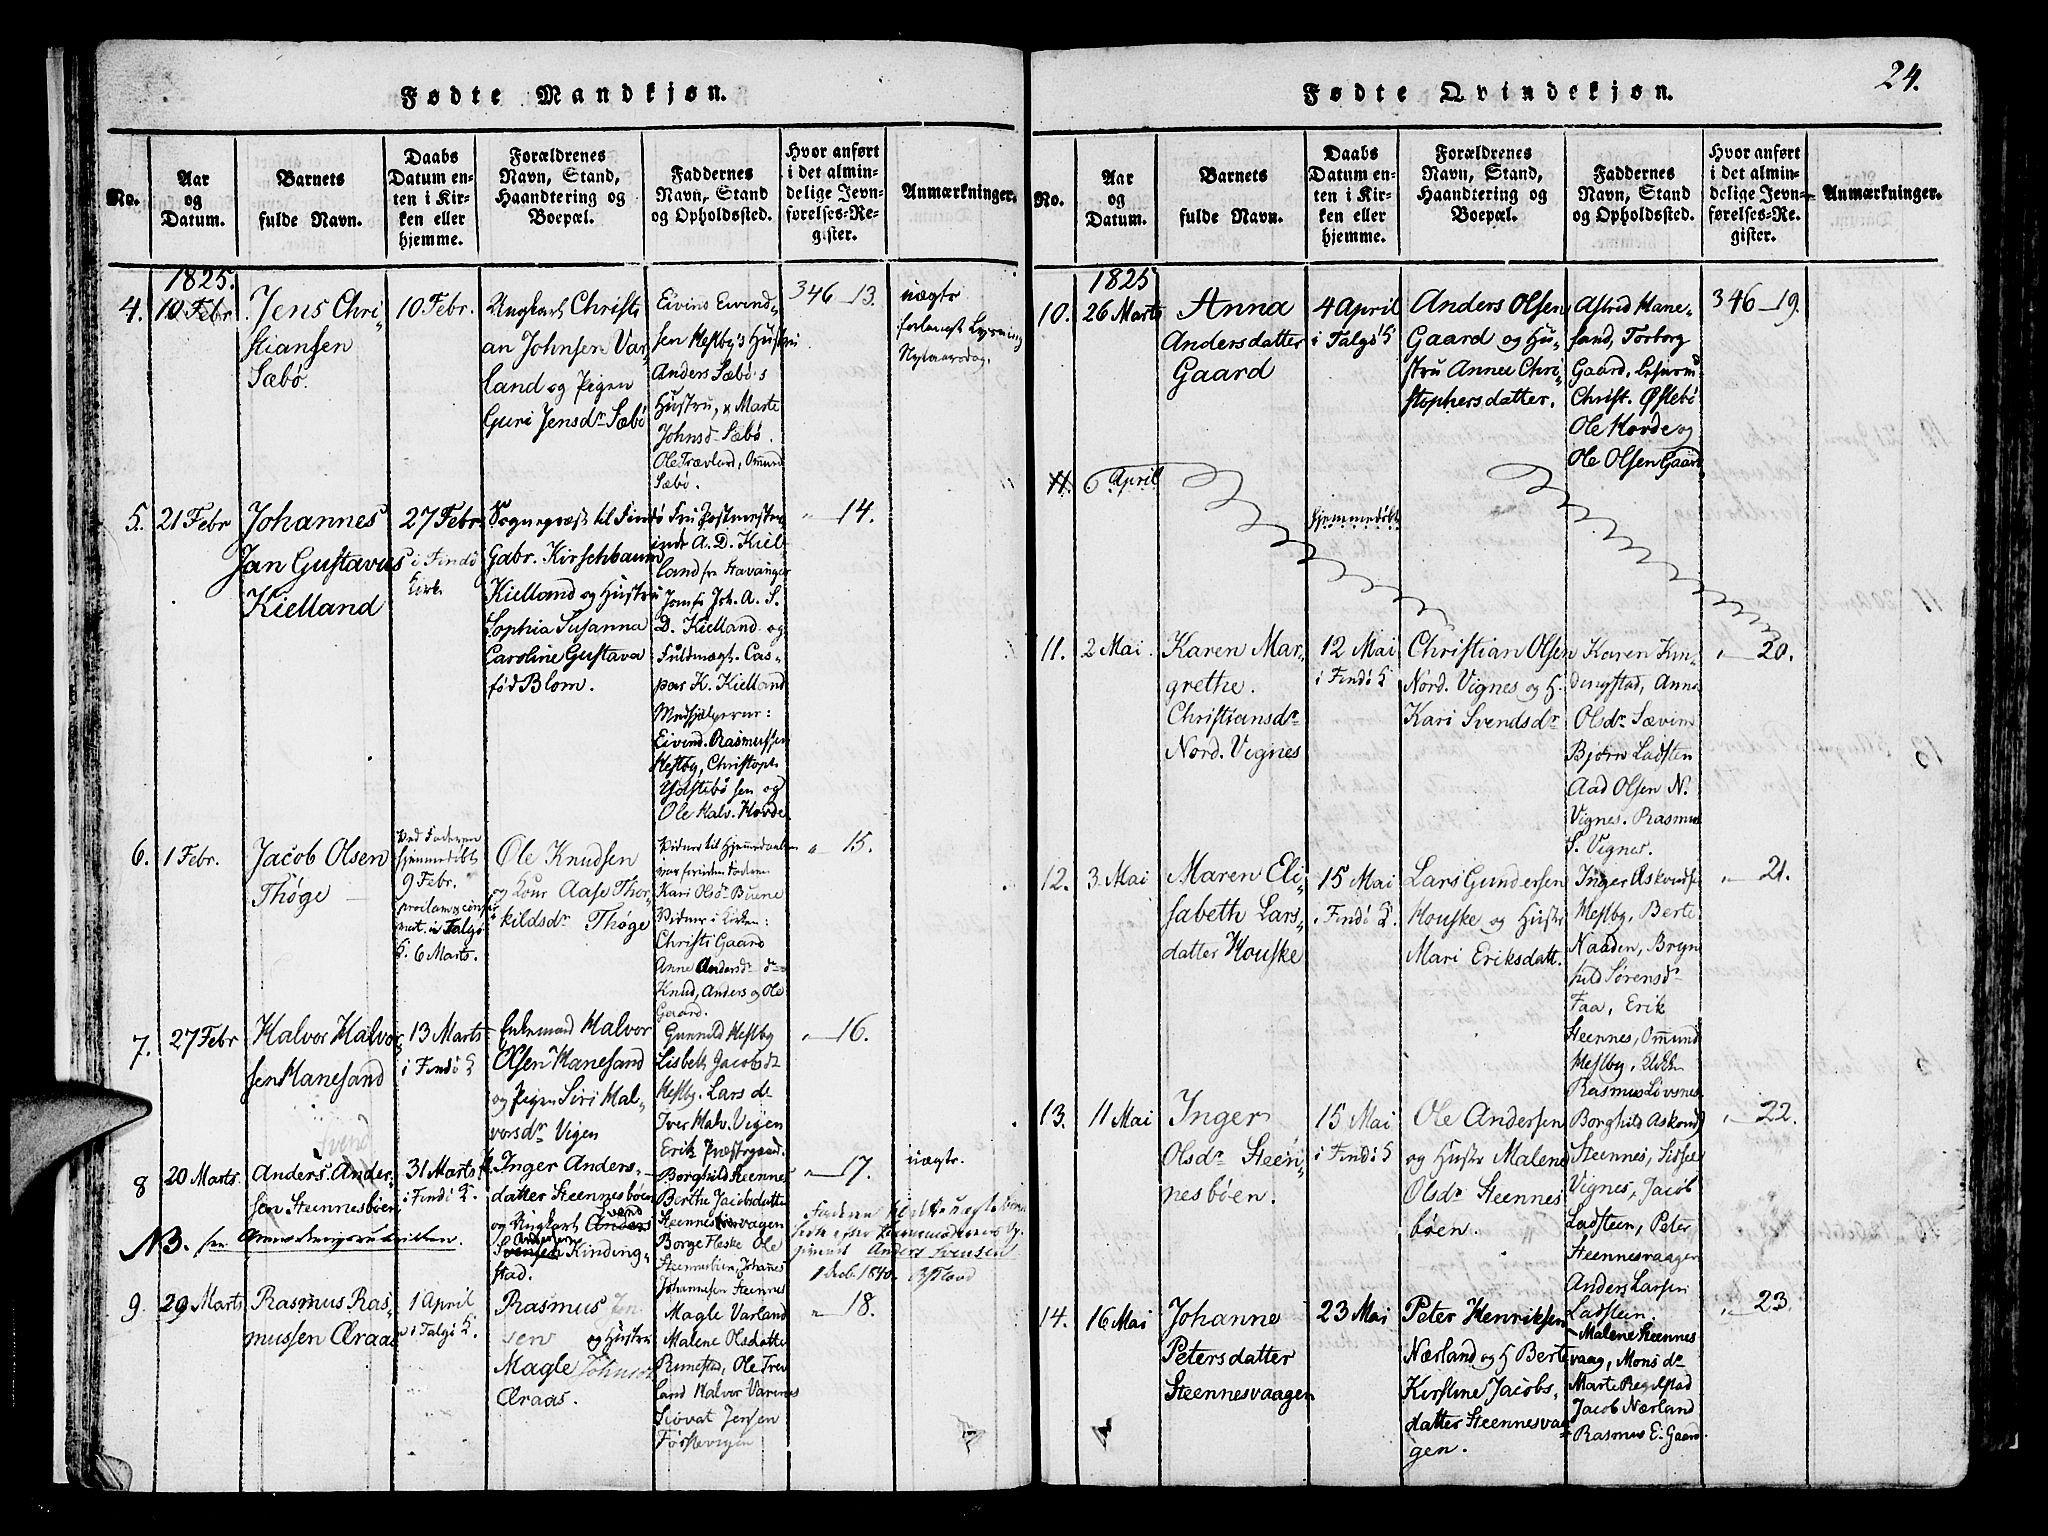 24.
Fødte Mandkjøn.
No.
Aar
og
Datum.
Barnets
fulde Navn.
Daabs
Datum en-
ten i Kir-
ken eller
hjemme.
Forældrenes
Navn, Stand,
Haandtering og
Boepæl.
Faddernes
Navn, Stand
og Opholdssted.
Hvor anført
i det almin-
delige Jevn-
førelses-Re-
gister.
Anmærkninger.
1825.
4.
10 Febr
Jens Chri-
stiansen
Sæbø.
10 Febr.
Ungkarl Christi
an Johnsen Var-
land og Pigen
Guri Jensdr Sæbø
Eivind Eivind-
sen Hestby's Hustru
Anders Sæbø's
Hustru, Marte
Johnsd Sæbø.
Ole Trævland, Omund
Sæbø.
346—13.
uægte
Nytaarsdag.
5.
21 Febr
Johannes
Jan Gustavus
Kielland
27 Febr.
i Findö
Kirke
Sognepræst til Findö
Gabr. Kirschbaum
Kielland og Hustru
Sophia Susanna
Caroline Gustava
fød Blom.
Fru Postmester
inde A. D. Kiel-
land fra Stavanger
Jomfr Joh. A. S.
D. Kielland og
Fuldmægt. Cas-
par K. Kielland
Medhjælperne:
Eivind Rasmussen
Hestby, Christoph.
Ydstebøsen og
Ole Halv. Horde
" 14.
6.
1 Febr.
Jacob Olsen
Thøge
Ved Faderen
hjemmedøbt
9 Febr.
i Talgö
K. 6 Marts.
Ole Knudsen
og Kone Aase Thor-
kildsdr Thøge
Vidner til Hjemmedaaben
var foruden Faderen
Kari Olsdr Buene
Vidner i Kirken:
Christi Gaard
Anne Andersdr do
Knud, Anders og Ole
Gaard.
" 15.
7.
27 Febr
Halvor Halvor-
sen Hanesand
13 Marts
i Findö K
Enkemand Halvor
Olsen Hanesand
og Pigen Siri Hal-
vorsdr Vigen
Gunnild Hestby
Lisbeth Jacobsdr
Hestby. Lars do
Iver Halv. Vigen
Erik Præstegaard.
" 16.
8
20 Marts.
Anders Ander-
sen Steennesbøen
31 Marts
i Findö K.
Inger Anders-
datter Steennesbøen
og Ungkarl Anders
Svend
Svensen Kinding-
Andersen
stad.
Borghild Steennes
Berthe Jacobsdatter
Steennesvaagen
Borge Fleske Ole
Steennesbøen, Johanes
Johannesen Steennes
" 17.
uægte.
Anders Svensen
NB.
9.
29 Marts
Rasmus Ras-
mussen Æraas
1 April
i Talgö K.
Rasmus Jen-
sen og Hustru
Magle Johnsd
Æraas.
Magle Varland
Malene Olsdatter
Rimestad, Ole Trev
land Halvor Varenes
Siovat Jensen
Førstevigen
" 18.
Fødte Qvindekjøn.
No.
Aar
og
Datum.
Barnets
fulde Navn.
Daabs
Datum en-
ten i Kir-
ken eller
hjemme.
Forældrenes
Navn, Stand,
Haandtering og
Boepæl.
Faddernes
Navn, Stand
og Opholdssted.
Hvor anført
i det almin-
delige Jevn-
førelses-Re-
gister.
Anmærkninger.
1825
10.
26 Marts
Anna
Andersdatter
Gaard
4 April
i Talgö K
Anders Olsen
Gaard og Hu-
stru Anna Chri-
stophersdatter.
Astrid Hane-
sand, Torborg
Gaard,
Christ. Østebö
Ole Horde og
Ole Olsen Gaard
346—19.
11.
6 April
hjemmedöbt
11.
2 Mai.
Karen Mar-
grethe.
Christiansdr
Nord. Vignes
12 Mai
i Findö K
Christian Olsen
Nord. Vignes og H.
Kari Svendsdr
Karen Kin-
dingstad, Anna
Olsdr Sævim
Bjørn Ladsten
Aad Olsen N.
Vignes. Rasmus
S. Vignes.
" 20.
12.
3 Mai
Maren Eli-
sabeth Lars-
datter Houske
15 Mai
i Findö K.
Lars Gundersen
Houske og Hustr
Mari Eriksdatt.
Inger Askouds
Hestby, Berte
Naaden, Bryn
hild Sørensdr
Faa, Erik
Steennes, Omund
Hestby,
Rasmus Livsnes
" 21.
13.
11 Mai
Inger
Olsdr Steen-
nesbøen.
15 Mai
i Findö K
Ole Andersen
og Hustr Malene
Olsdr Steennes
bøen.
Borghild Askoud
Steennes, Sidsee
Vignes, Jacob
Ladsteen, Peter
Steennesvaagen
Anders Larsen
Ladsteen.
" 22.
14.
16 Mai
Johanne
Petersdatter
Steennesvaagen
23 Mai
Peter Henriksen
Nærland og H Berte
Kirstine Jacobs-
datter Steennesvaa-
gen.
Malene Steennes
vaag, Mons do
Marte Regelstad
Jacob Nærland
Rasmus E. Gaard.
" 23.